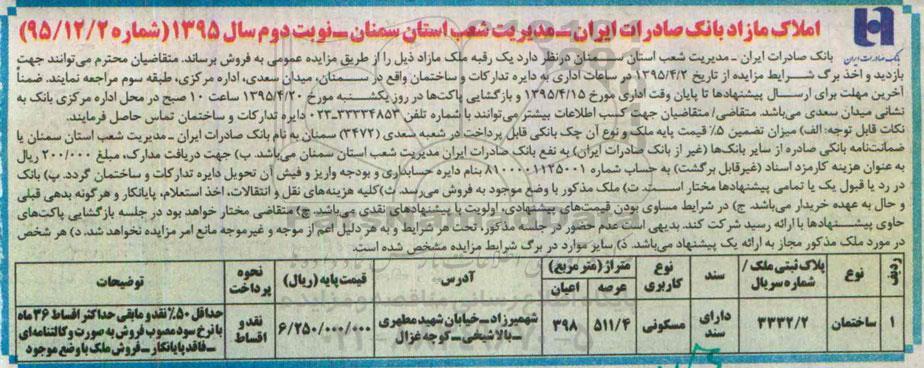 املاک مازاد بانک صادرات ایران ـ مدیریت شعب استان سمنان ـ نوبت دوم سال ۱۳۹۵ (شماره ۹۵/۱۲/۲)
بانک صادرات ایران
بانک صادرات ایران ـ مدیریت شعب استان سمنان درنظر دارد یک رقبه ملک مازاد ذیل را از طریق مزایده عمومی به فروش برساند. متقاضیان محترم می‌توانند جهت
بازدید و اخذ برگ شرایط مزایده از تاریخ ۱۳۹۵/۴/۲ در ساعات اداری به دایره تدارکات و ساختمان واقع در سمنان، میدان سعدی، اداره مرکزی، طبقه سوم مراجعه نمایند. ضمناً
آخرین مهلت برای ارسال پیشنهادها تا پایان وقت اداری مورخ ۱۳۹۵/۴/۱۵ و بازگشایی پاکت‌ها در روز یکشنبه مورخ ۱۳۹۵/۴/۲۰ ساعت ۱۰ صبح در محل اداره مرکزی بانک به
نشانی میدان سعدی می‌باشد. متقاضی/ متقاضیان جهت کسب اطلاعات بیشتر می‌توانند با شماره تلفن ۳۳۳۳۴۸۵۳-۰۲۳ دایره تدارکات و ساختمان تماس حاصل فرمایند.
نکات قابل توجه: الف) میزان تضمین ۵٪ قیمت پایه ملک و نوع آن چک بانکی قابل پرداخت در شعبه سعدی (۳۴۷۲) سمنان به نام بانک صادرات ایران ـ مدیریت شعب استان سمنان یا
ضمانت‌نامه بانکی صادره از سایر بانک‌ها (غیر از بانک صادرات ایران) به نفع بانک صادرات ایران مدیریت شعب استان سمنان می‌باشد. ب) جهت دریافت مدارک، مبلغ ۲۰۰/۰۰۰ ریال
به عنوان هزینه کارمزد اسناد (غیرقابل برگشت) به حساب شماره ۸۱۰۰۰۰۱۱۳۵۰۰۱ بنام دایره حسابداری و بودجه واریز و فیش آن تحویل دایره تدارکات و ساختمان گردد. پ) بانک
در رد یا قبول یک یا تمامی پیشنهادها مختار است. ت) ملک مذکور با وضع موجود به فروش می‌رسد. ث) کلیه هزینه‌های نقل و انتقالات، اخذ استعلام، پایانکار و هرگونه بدهی قبلی
و حال به عهده خریدار می‌باشد. ج) در شرایط مساوی بودن قیمت‌های پیشنهادی، اولویت با پیشنهادهای نقدی می‌باشد. چ) متقاضی مختار خواهد بود در جلسه بازگشایی پاکت‌های
حاوی پیشنهادها با ارائه رسید شرکت کند. بدیهی است عدم حضور در جلسه مذکور، تحت هر شرایط و به هر دلیل اعم از موجه و غیرموجه مانع امر مزایده نخواهد شد. د) هر شخص
در مورد ملک مذکور مجاز به ارائه یک پیشنهاد می‌باشد. ذ) سایر موارد در برگ شرایط مزایده مشخص شده است.
ردیف | نوع | پلاک ثبتی ملک / شماره سریال | سند | نوع کاربری | متراژ (متر مربع) عرصه | اعیان | آدرس | قیمت پایه (ریال) | نحوه پرداخت | توضیحات
۱ | ساختمان | ۳۳۳۲/۲ | دارای سند | مسکونی | ۵۱۱/۴ | ۳۹۸ | شهمیرزاد ـ خیابان شهید مطهری ـ بالا شیخی ـ کوچه غزال | ۶/۲۵۰/۰۰۰/۰۰۰ | نقد و اقساط | حداقل ۵۰٪ نقد و مابقی حداکثر اقساط ۳۶ ماه با نرخ سود مصوب فروش به صورت وکالتنامه‌ای ـ فاقد پایانکار ـ فروش ملک با وضع موجود